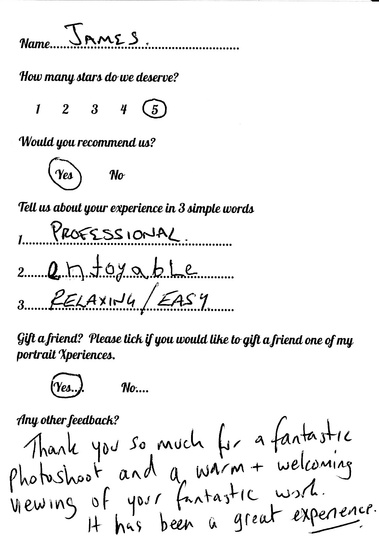 Name....JAMES.
How many stars do we deserve?
1 2 3 4 5
Would you recommend us?
Yes No
Tell us about your experience in 3 simple words
1....PROFESSIONAL.
2....enjoyable
3....RELAXING/EASY
Gift a friend? Please tick if you would like to gift a friend one of my
portrait Xperiences.
Yes... No....
Any other feedback?
Thank you so much for a fantastic
photoshoot and a warm + welcoming
viewing of your fantastic work.
It has been a great experience.